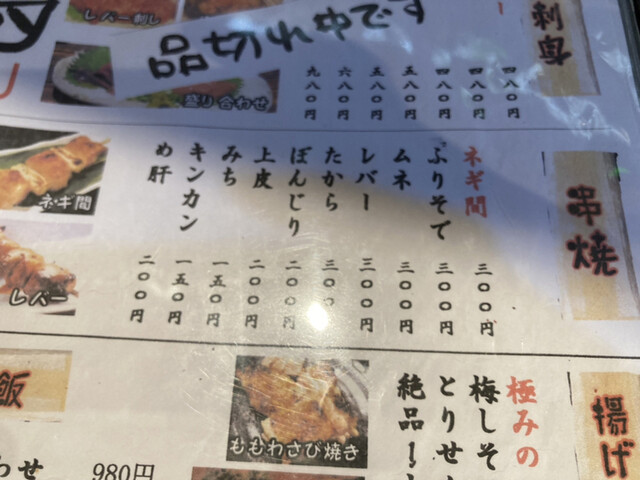 刺身
四八〇円
四八〇円
四八〇円
五八〇円
五八〇円
六八〇円
九八〇円
品切れ中です
レバー刺し
盛り合わせ
串焼
ネギ間
三〇〇円
ぶりそで
三〇〇円
ムネ
三〇〇円
レバー
三〇〇円
たから
三〇〇円
ぼんじり
二〇〇円
上皮
二〇〇円
みち
一五〇円
キンカン
一五〇円
め肝
二〇〇円
ネギ間
レバー
揚げ
極みの
梅しそ
とりせ
絶品!
ももわさび焼き
飯
わせ
980円